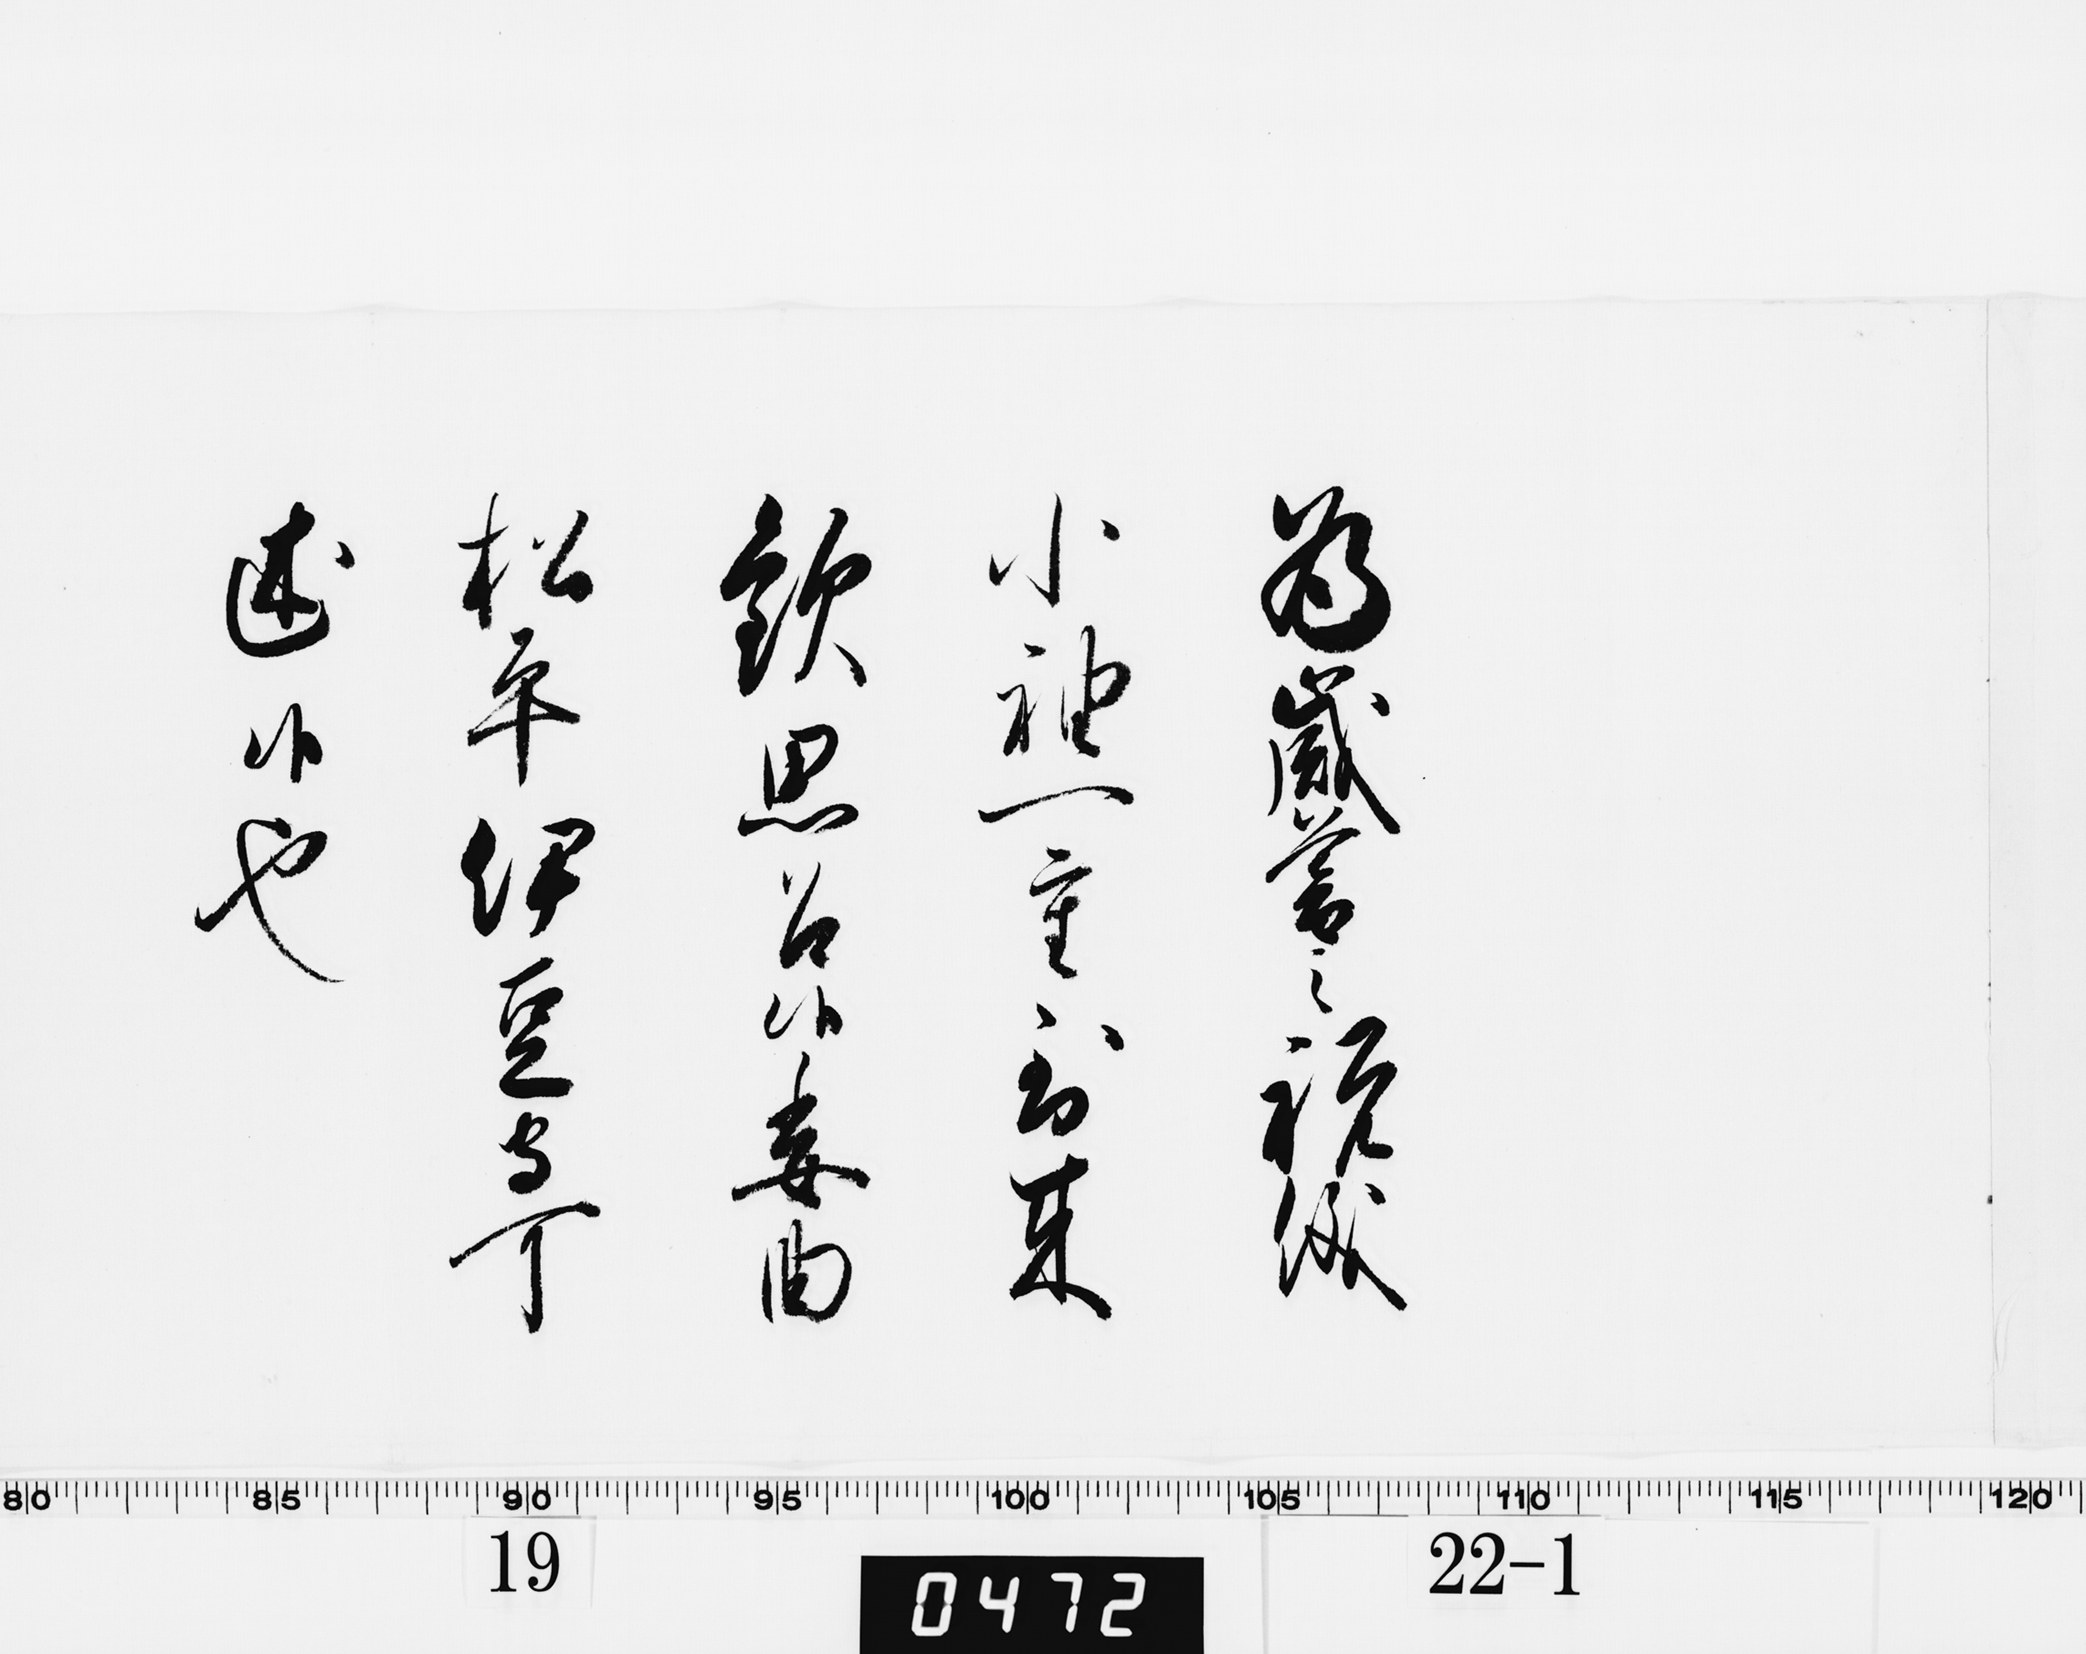 為歳暮之祝儀
小袖一重到来
歓思召候委曲
松平伊豆守可
述候也
80 85 90 95 100 105 110 115 120
19
0472
22-1